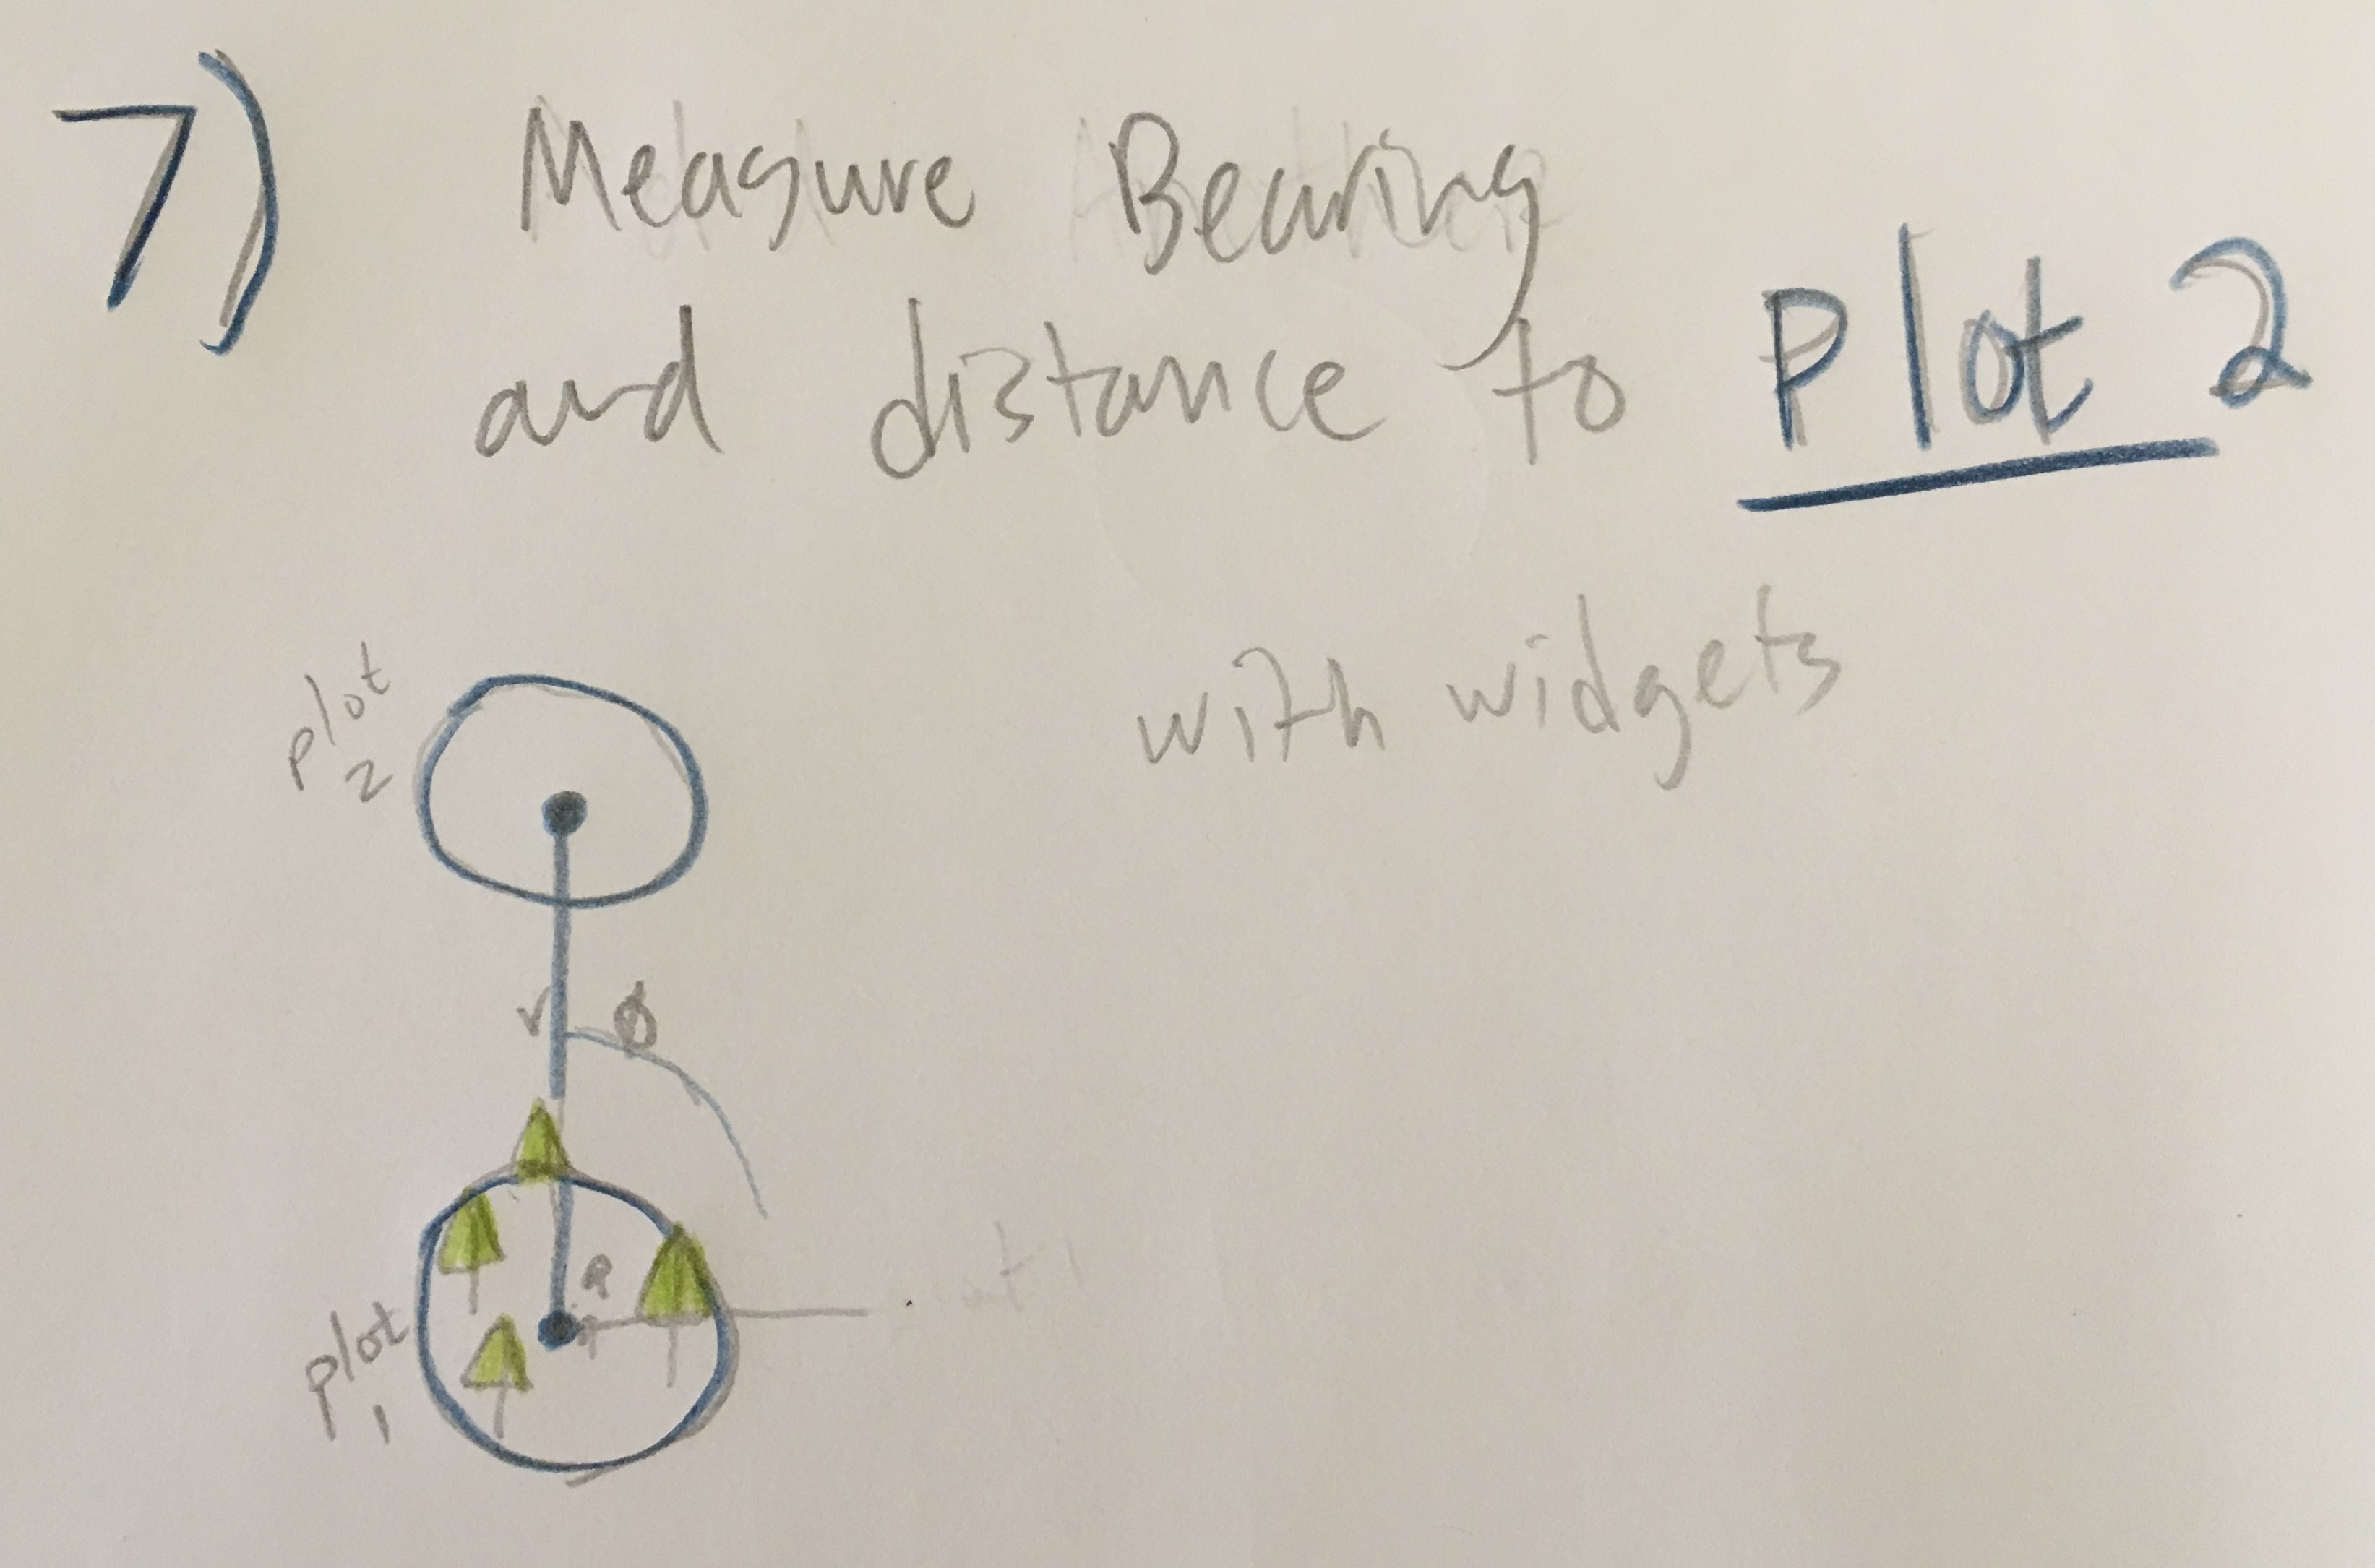 7) Measure Bearing
and distance to Plot 2
with widgets
plot
2
r ϕ
plot
1